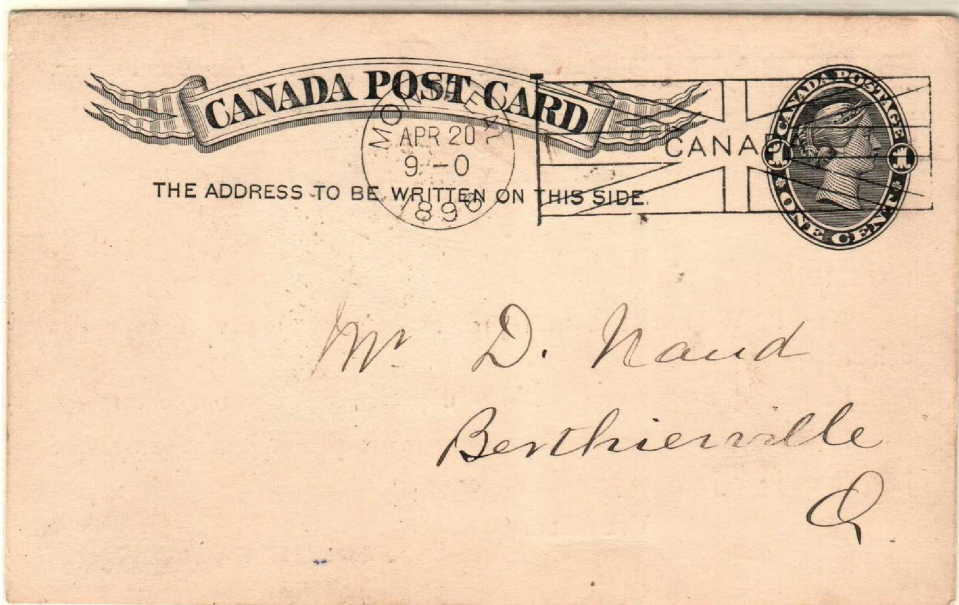 CANADA POST CARD
MONTREAL
APR 20
9-0
1896
CANADA
CANADA POSTAGE
1 1
ONE CENT
THE ADDRESS TO BE WRITTEN ON THIS SIDE.
Mr D. Naud
Berthierville
Q